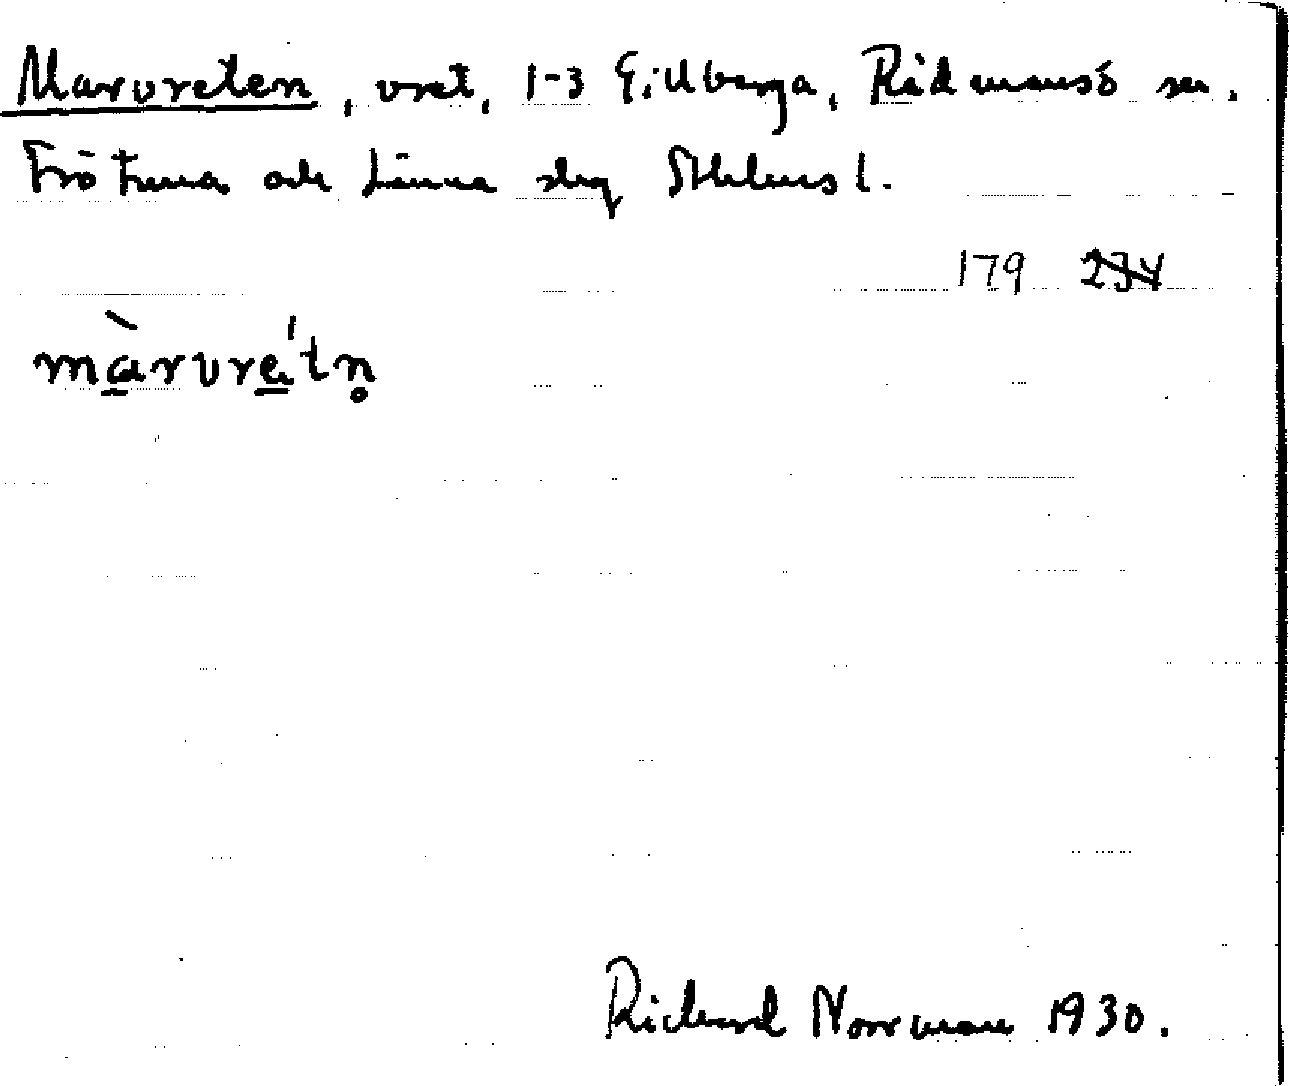 Marvreten, vret, 1-3 Gillberga, Rådmansö sn.
Frötuna och Länna skg Sthlms l.
179 234
màrvre̲'tn̥
Richard Norrman 1930.